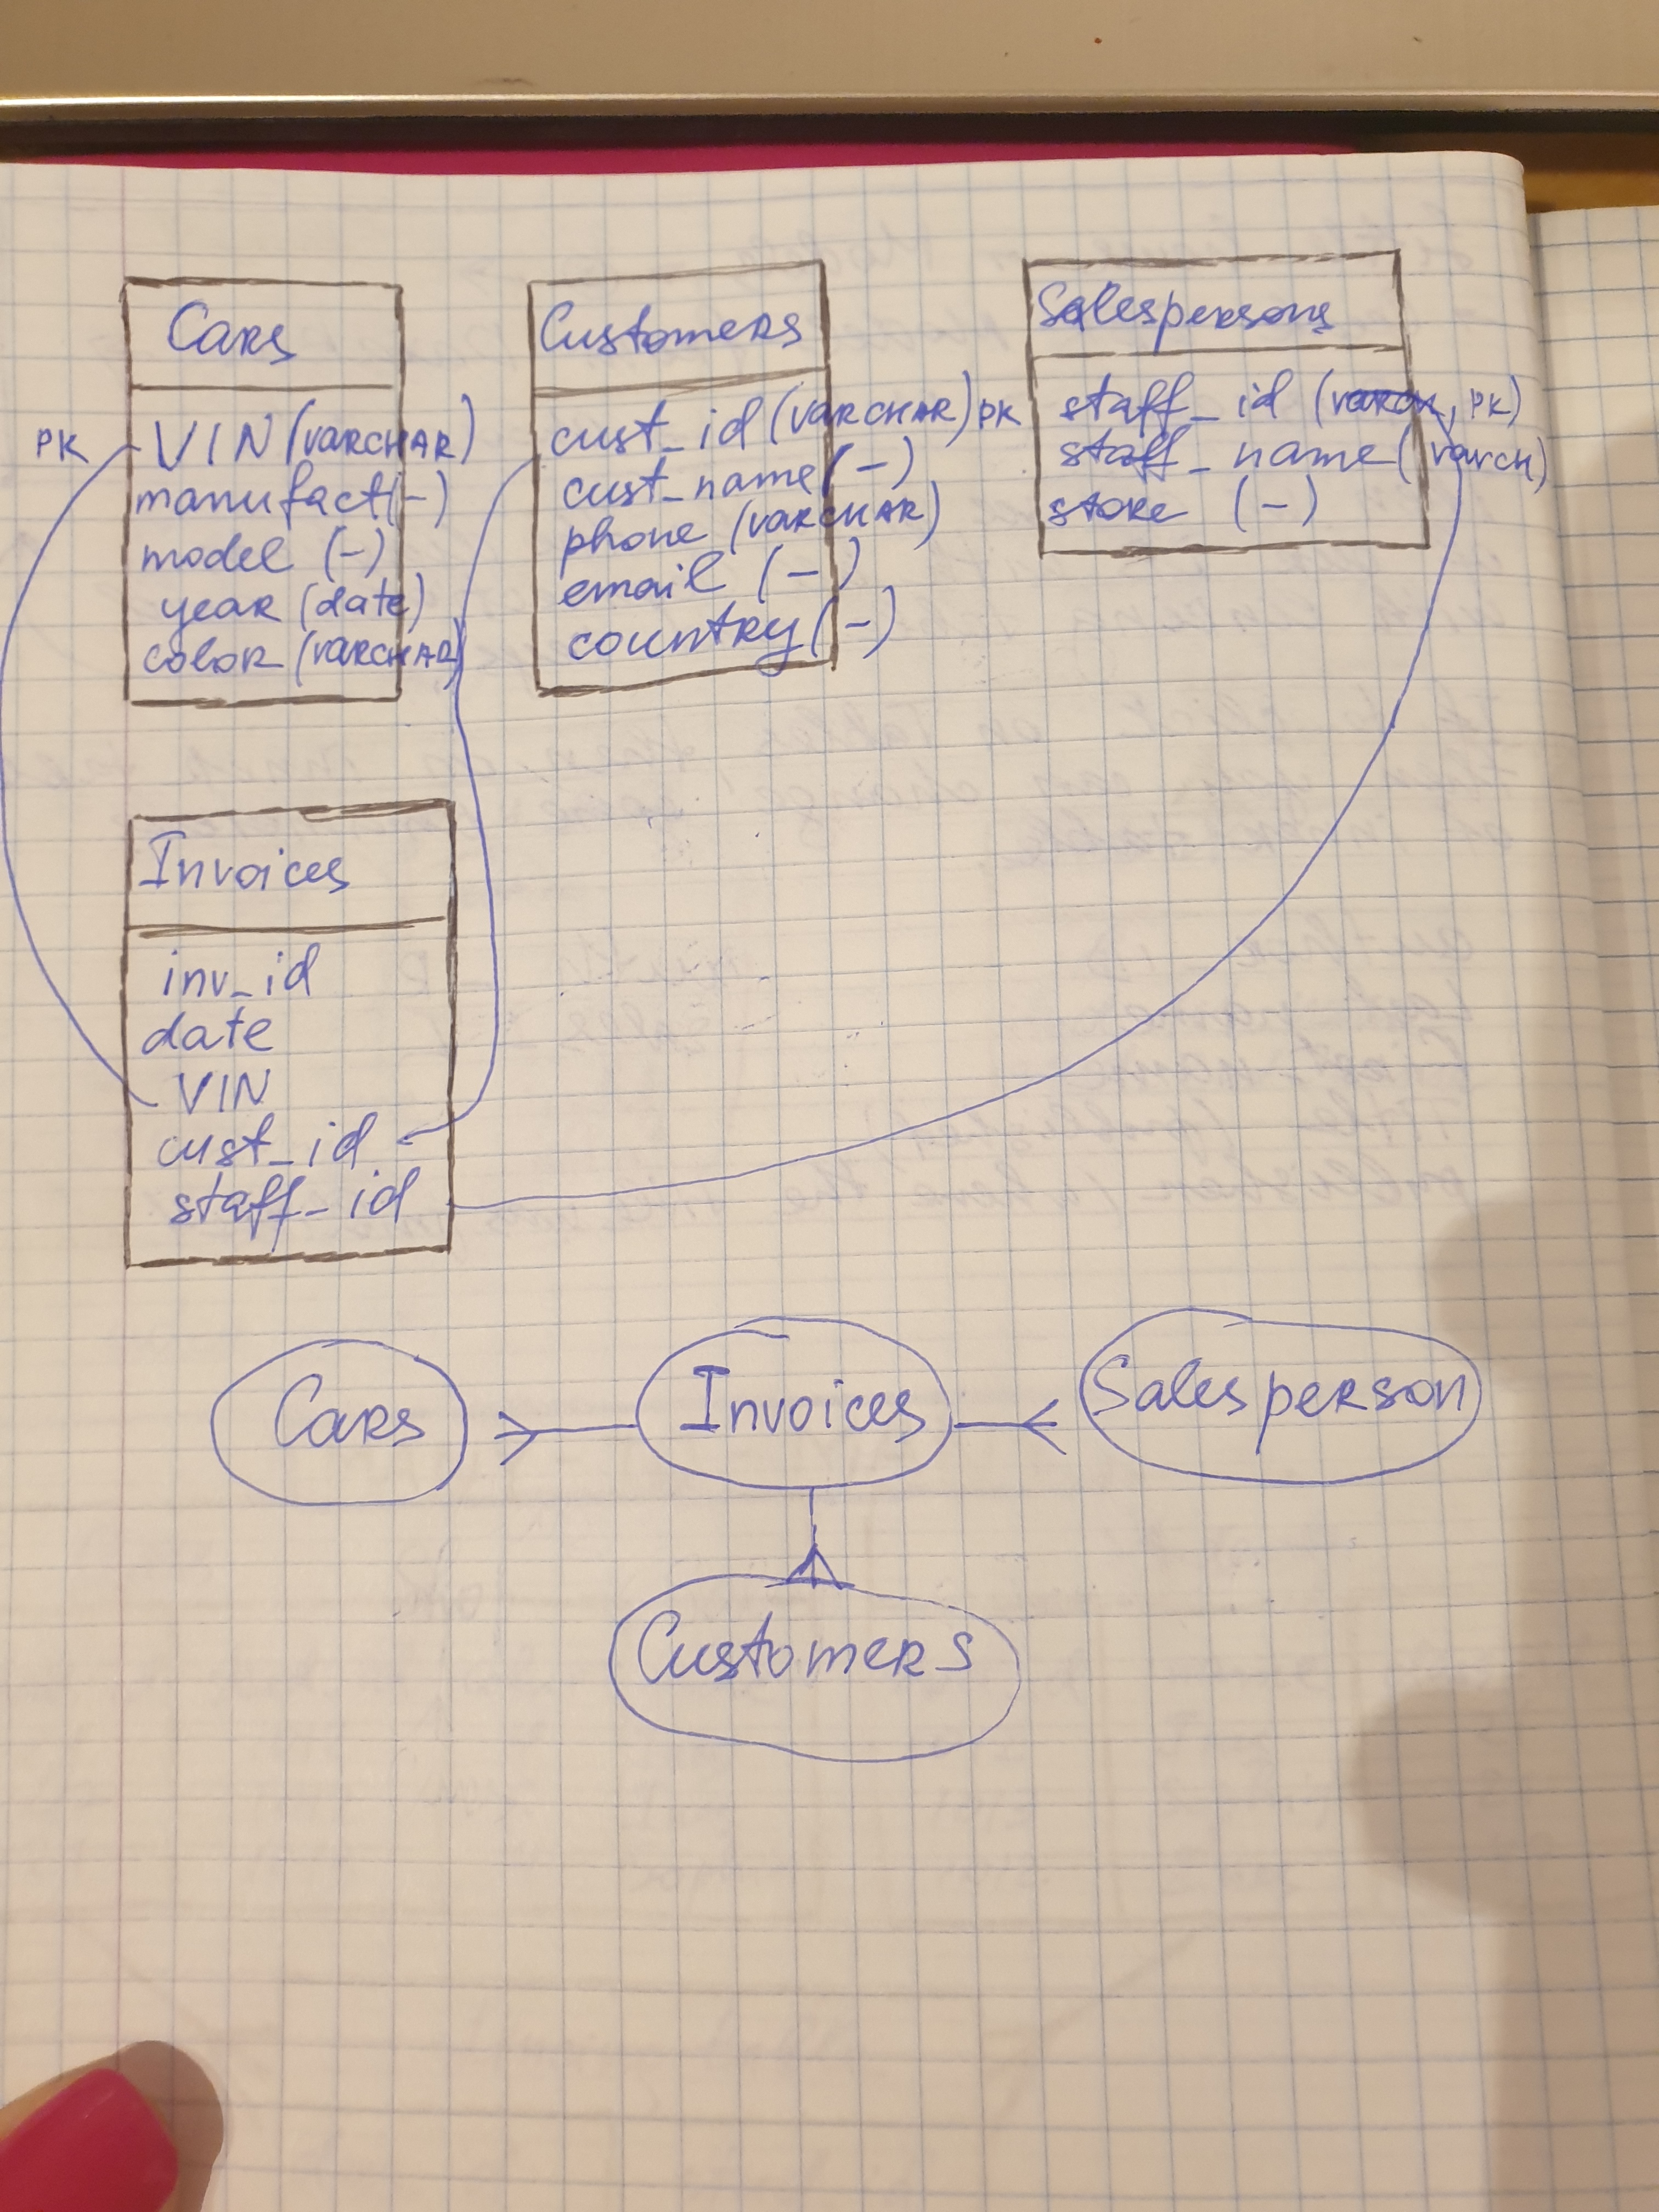 Cars
PK VIN (VARCHAR)
manufact (-)
model (-)
year (date)
color (VARCHAR)
Customers
cust_id (VARCHAR) PK
cust_name (-)
phone (VARCHAR)
email (-)
country (-)
Salespersons
staff_id (varch, PK)
staff_name (varch)
store (-)
Invoices
inv_id
date
VIN
cust_id
staff_id
Cars
Invoices
Salesperson
Customers